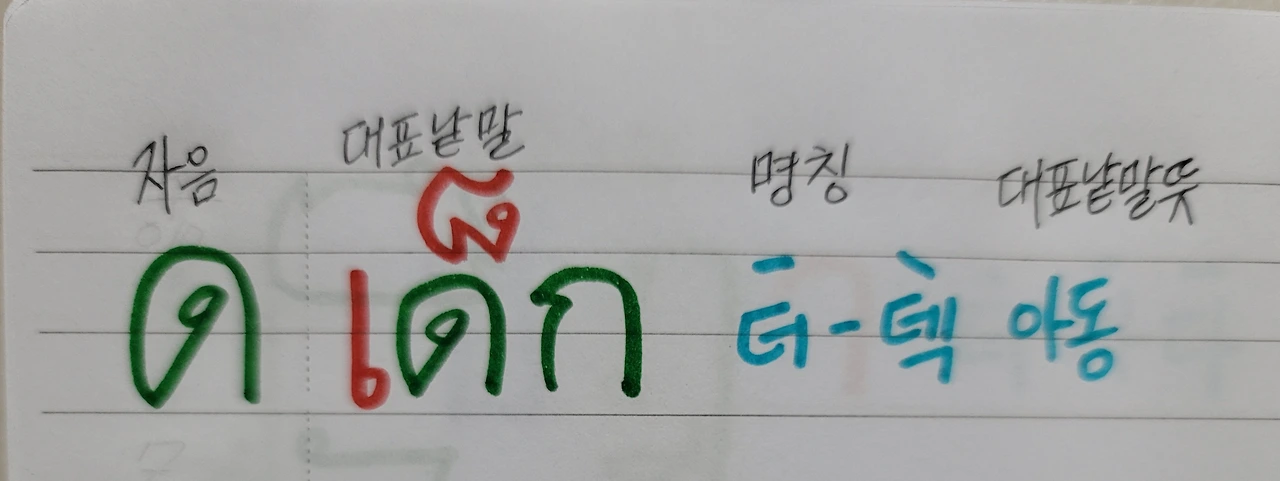 자음 대표낱말 명칭 대표낱말뜻
ด เด็ก 더-덱 아동